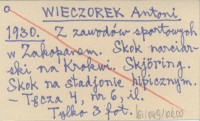 WIECZOREK Antoni
1930. Z zawodów sportowych
w Zakopanem. Skok narciar-
ski na Krokwi. Skjöring.
Skok na stadjonie hipicznym.
- Tęcza 4, nr 6, il.
Tylko 3 fot.